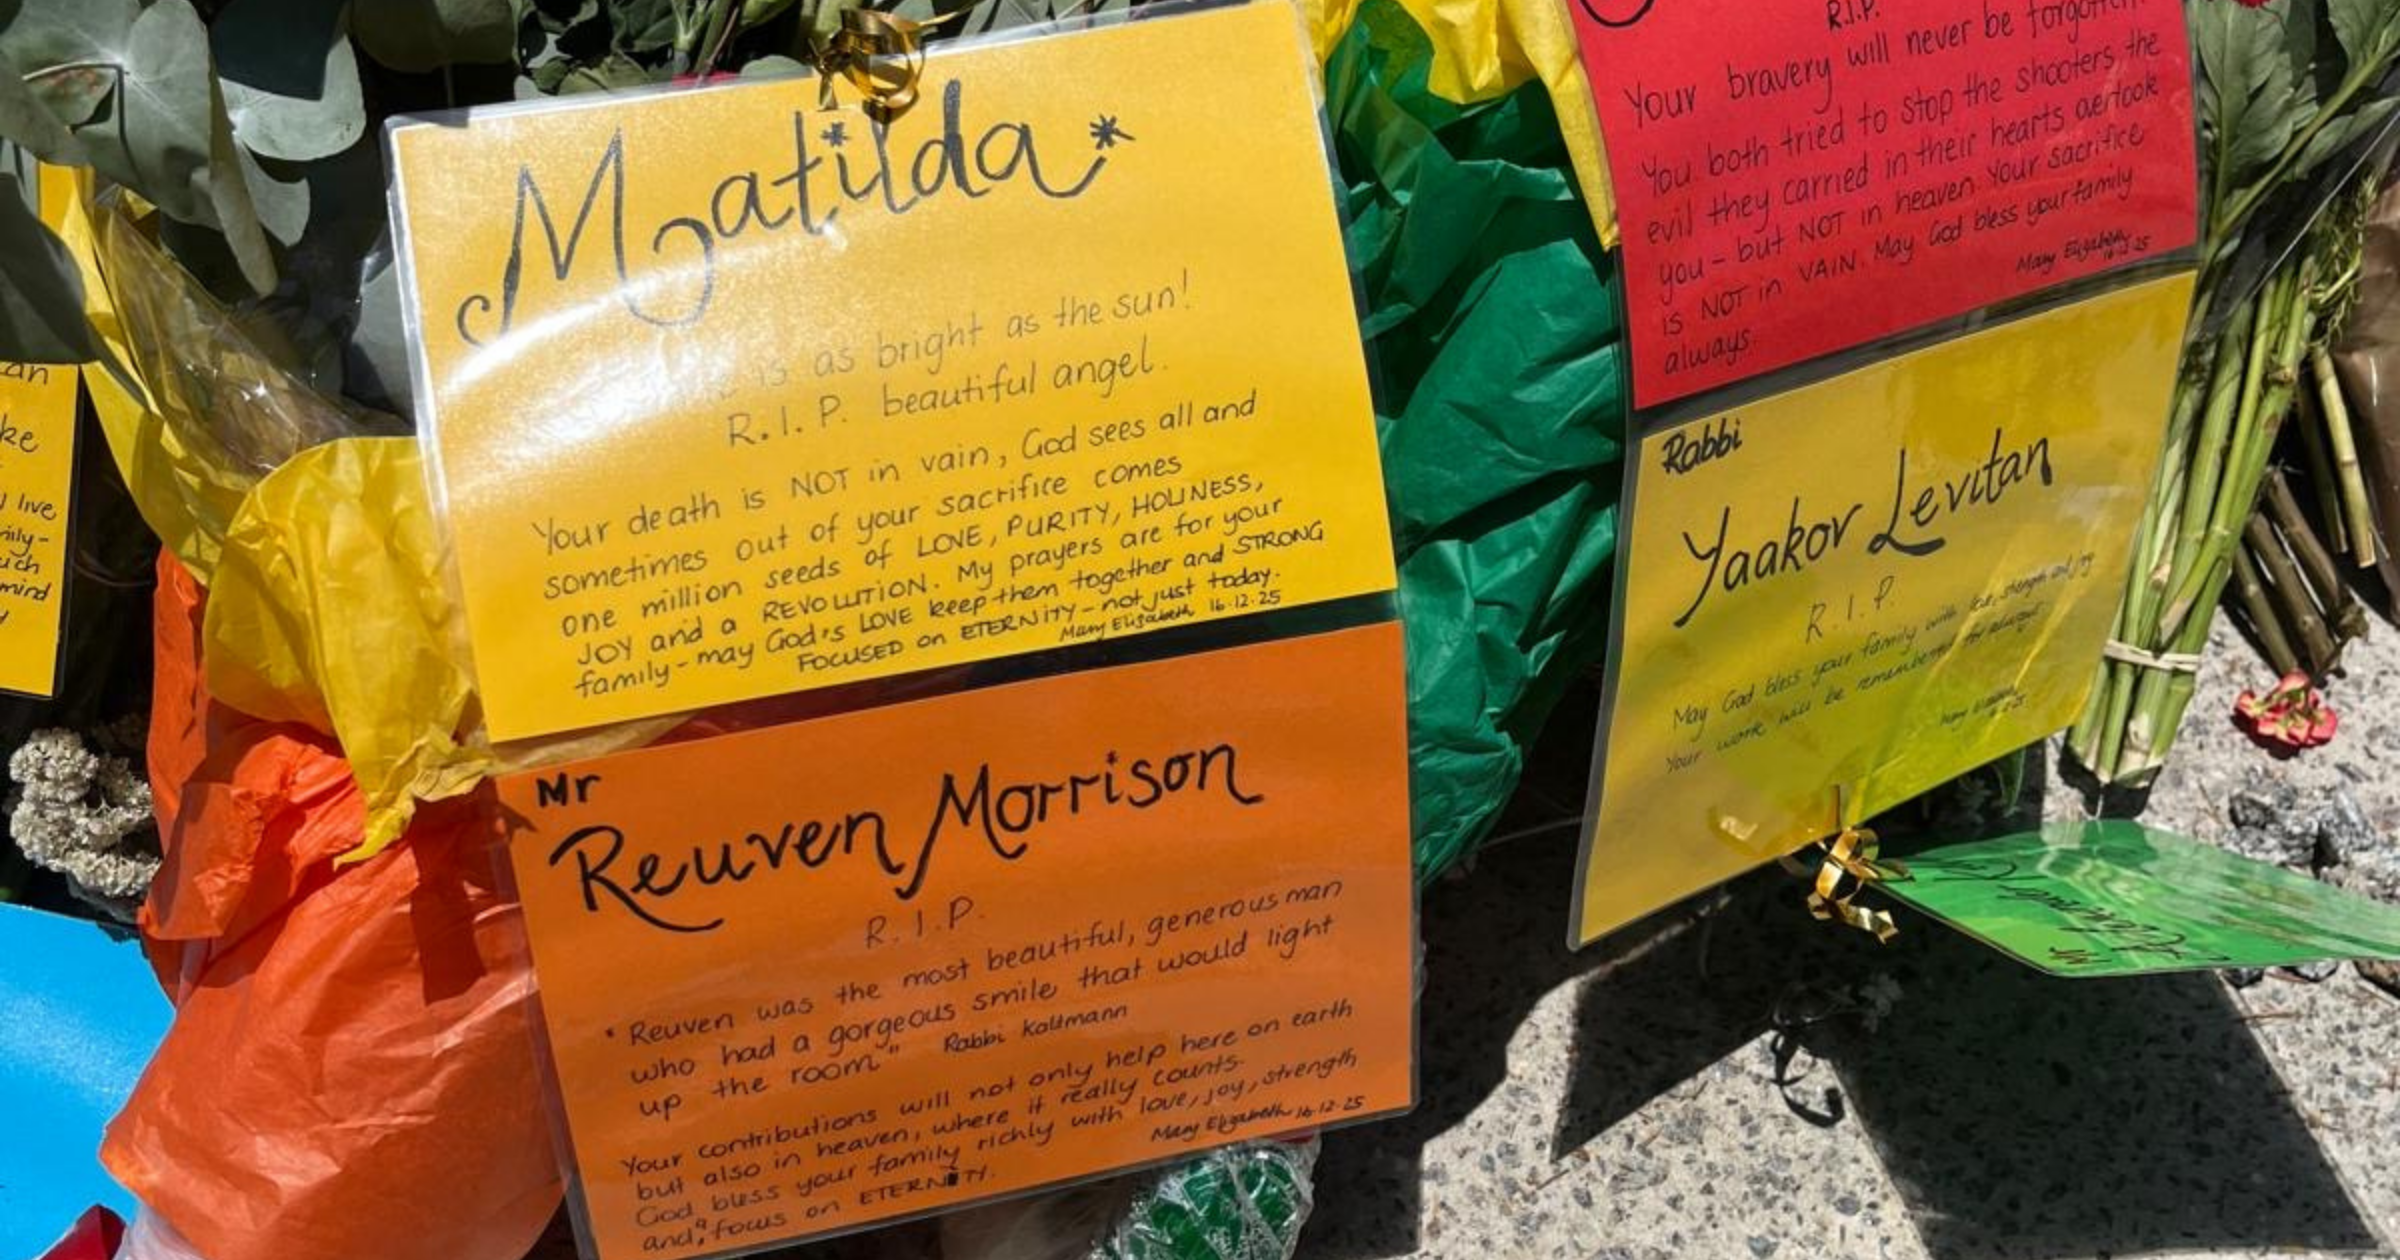 Matilda
is as bright as the sun!
R.I.P. beautiful angel.
Your death is NOT in vain, God sees all and
sometimes out of your sacrifice comes
one million seeds of LOVE, PURITY, HOLINESS,
JOY and a REVOLUTION. My prayers are for your
family - may God's LOVE keep them together and STRONG
FOCUSED on ETERNITY - not just today.
Mary Elizabeth 16.12.25
Mr
Reuven Morrison
R.I.P.
"Reuven was the most beautiful, generous man
who had a gorgeous smile that would light
up the room" Rabbi Kaltmann
Your contributions will not only help here on earth
but also in heaven, where it really counts.
God bless your family richly with love, joy, strength
and a focus on ETERNITY.
Mary Elizabeth 16.12.25
R.I.P.
Your bravery will never be forgotten.
You both tried to stop the shooters, the
evil they carried in their hearts overtook
you - but NOT in heaven. Your sacrifice
is NOT in VAIN. May God bless your family
always.
Mary Elizabeth 16.12.25
Rabbi
Yaakov Levitan
R.I.P.
May God bless your family with love, strength and joy
Your work will be remembered for always!
an
ke
live
ily-
ich
mind
Mr